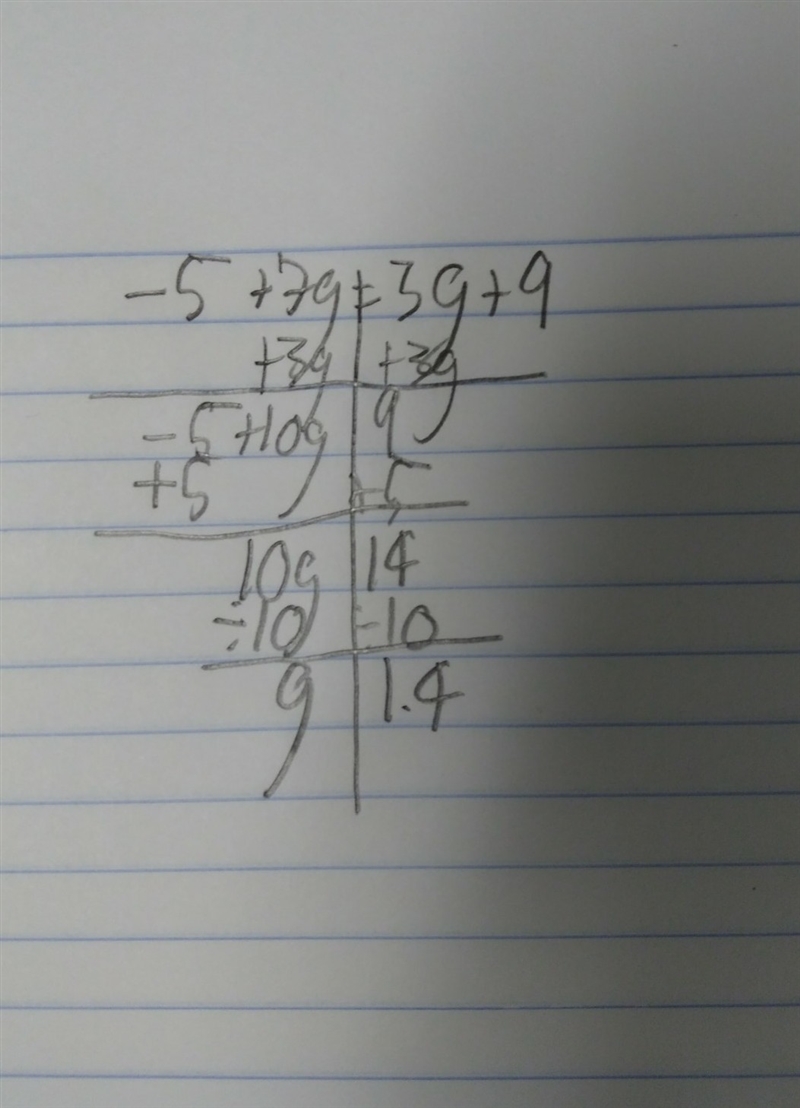 -5 +7g = 3g+9
+3g +3g
-5+10g 9
+5 +5
10g 14
÷10 ÷10
g 1.4